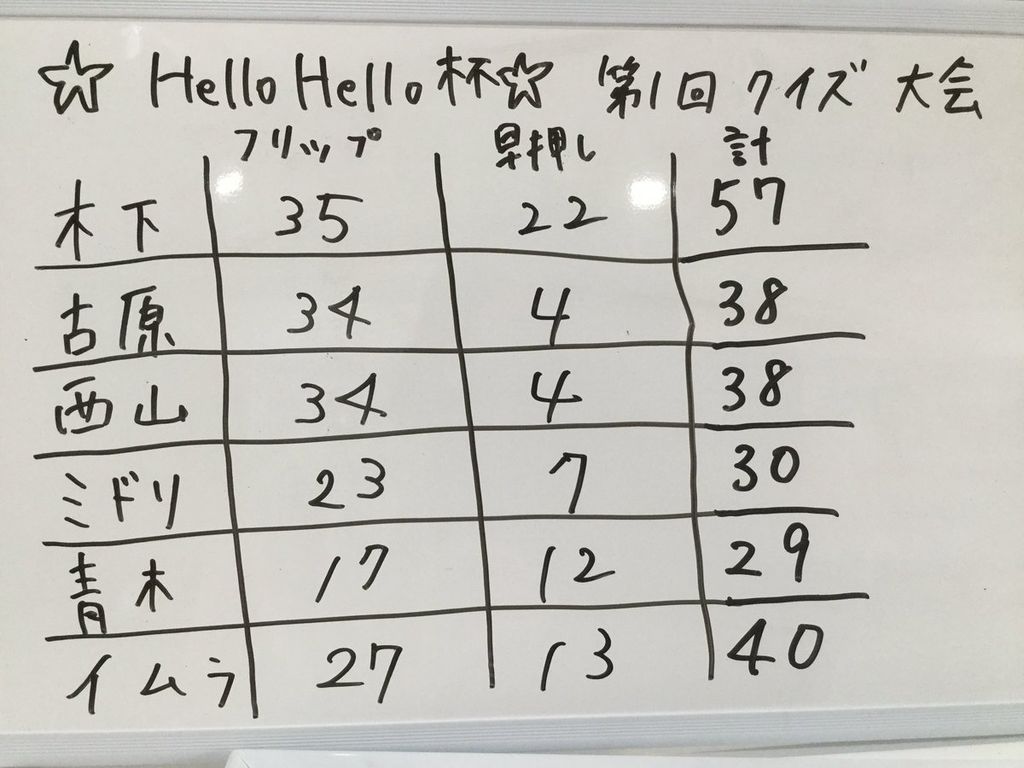 ☆ Hello Hello 杯☆ 第1回 クイズ 大会
フリップ 早押し 計
木下 35 22 57
古原 34 4 38
西山 34 4 38
ミドリ 23 7 30
青木 17 12 29
イムラ 27 13 40